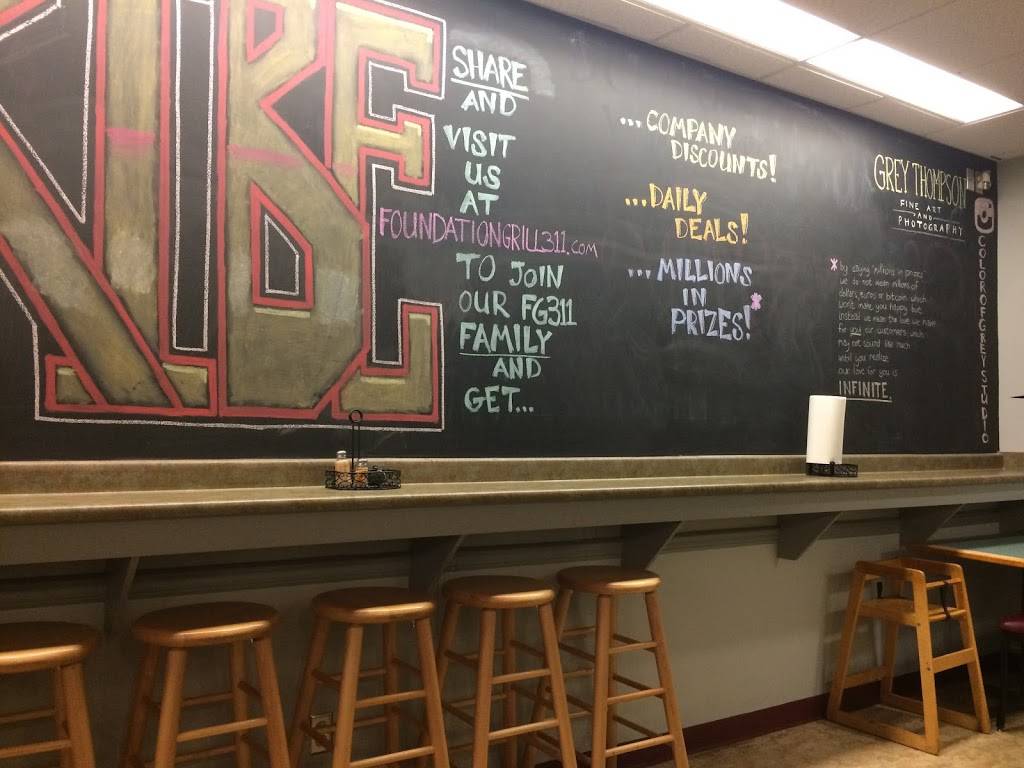 IBE
SHARE
AND
VISIT
US
AT
FOUNDATIONGRILL311.com
TO JOIN
OUR FG311
FAMILY
AND
GET...
...COMPANY
DISCOUNTS!
...DAILY
DEALS!
...MILLIONS
IN
PRIZES!*
GREY THOMPSON
FINE ART
AND
PHOTOGRAPHY
COLOROFGREYSTUDIO
*by saying "millions in prizes"
we do not mean millions of
dollars, euros or bitcoin which
won't make you happy but
instead we mean the love we have
for you our customers which
may not sound like much
until you realize
our love for you is
INFINITE.